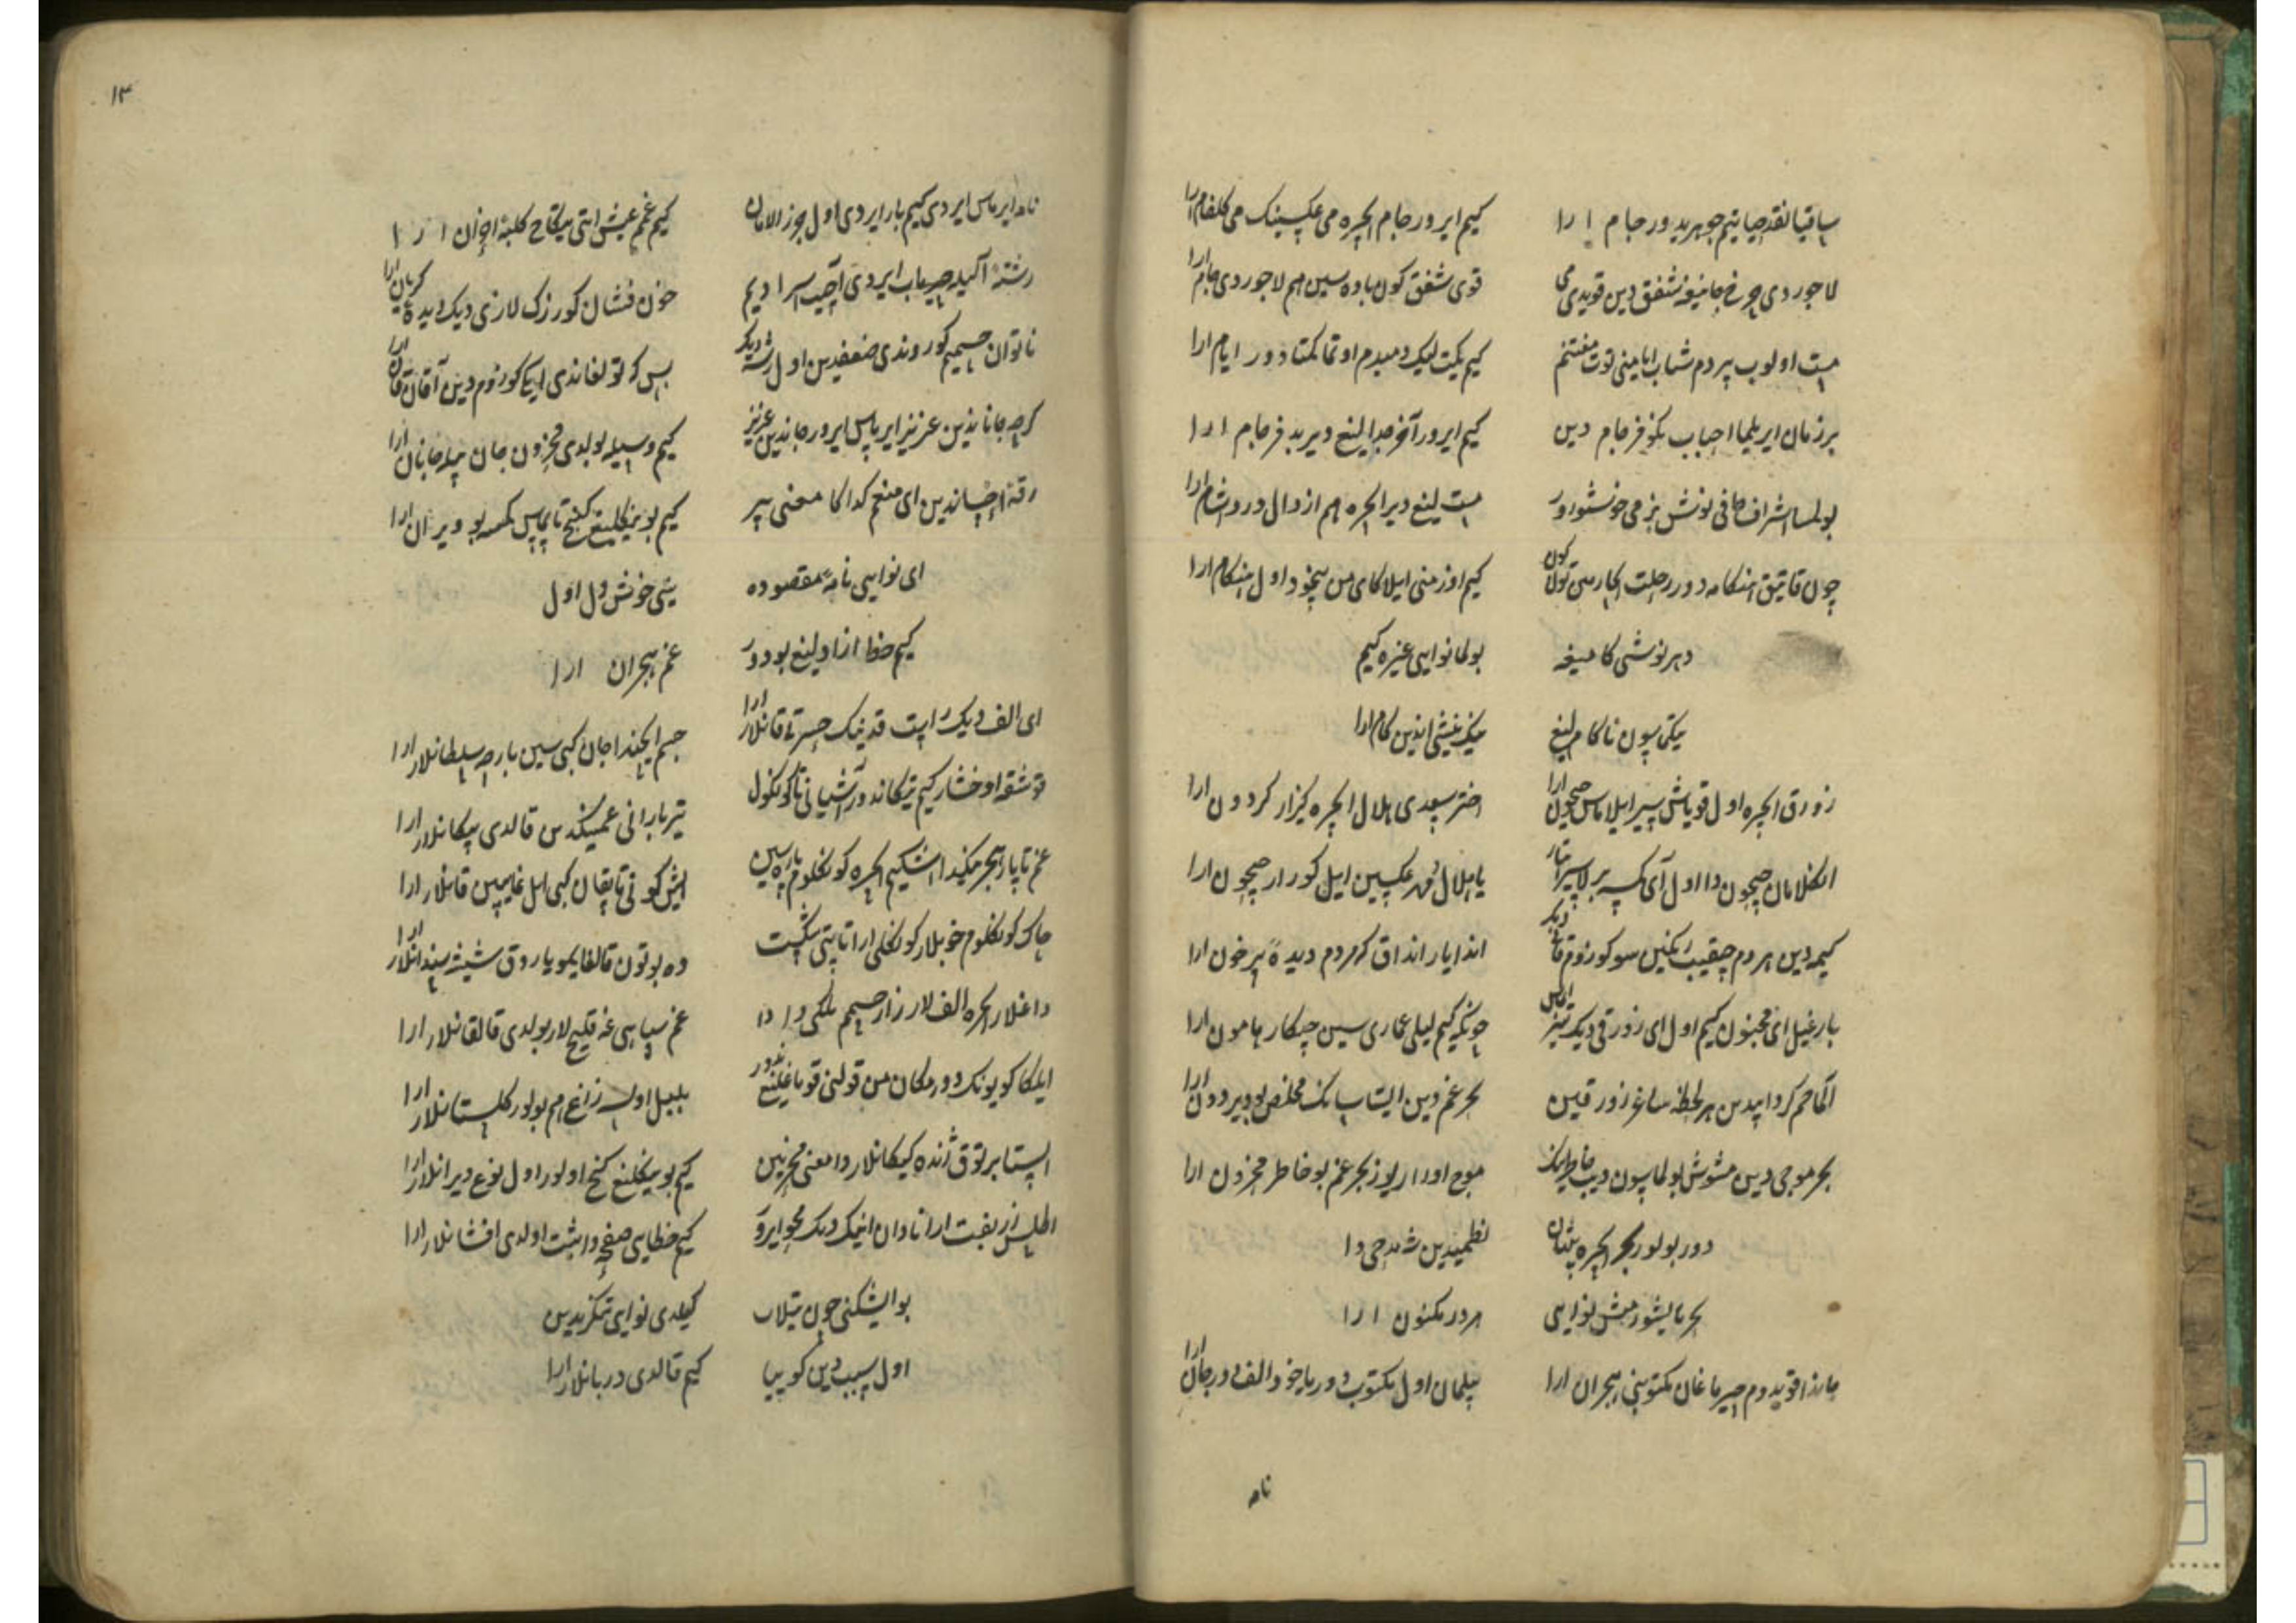 ساقیا نقد حیاتیم جوهریدور جام ارا
کیم ایرور جام ایچره می عکسینک می کلفام ارا
لاجوردی چرخ جامیغه شفق دین قویدی می
قوی شفق کون باده سین هم لاجوردی جام ارا
مست اولوب هر دم شباب ایامینی توت مغتنم
کیم یکیت لیک دمیدم اوتماکتا دور ایام ارا
بر زمان ایریلما احباب نکو فرجام دین
کیم ایرور آخر جدالیغ دیر بد فرجام ارا
بولسا اشراف صافی نوش بزمی خوشتورور
مست لیغ دیر ایچره هم ارذال درد آشام ارا
چون قاتیق هنکامه دور رحلت
کیم اوزمنی ایلاکای من بیخود اول هنکام ارا
دهر نوشی کامیغه
بولما نوایی غره کیم
یتکاسون ناکام لیغ
نیش اندین کام ارا
زورق ایچره اول قویاش سیر ایلاماس جیحون ارا
اختر سعدی هلال ایچره کیزار کردون ارا
انکلامان جیحون دا اول آی کیمه بیرلا سیر ایتار
یا هلال و مهر عکسین ایل کورار جیحون ارا
کیمه دین هر دم چیقیب تکین سو کوزوم قانی دیک
اندا یار انداق که مردم دیده پر خون ارا
بارغیل ای مجنون کیم اول آی زورقی دیک تیز ایماس
چونکه کیم لیلی عماری سین چیکار هامون ارا
آلماحم کردابیدین هر لحظه ساغر زورقین
بحر غم دین ایستاسانک مخلص بو دیر دون ارا
بحر موجی دین مشوش بولماسون دیب خاطرینک
موج اورار یوز بحر غم بو خاطر محزون ارا
دور بولور بحر ایچره پنهان
نظمیدین شه مدحی دا
بحر یاشورمیش نوایی
هر در مکنون ارا
جاندا قویدوم جیرماغان مکتوبنی هجران ارا
بیلمان اول مکتوب دور یاخود الف دور جان ارا
نامه
۱۳
نامه ایرماس ایردی کیم بار ایردی اول حرز الامان
کیم غم عیش ایتی یتکاچ کلبه احزان ارا
رشته آکیله جیرماب ایردی آچیب اسرادیم
خون فشان کوزرک لاری دیک دیده کریان ارا
ناتوان جسمیم کوروندی ضعفدین اول رشته دیک
بس که تولغاندی ایکی کوزوم دین آققان قان ارا
کرچه جاناندین عزیز ایرماس ایرور جاندین عزیز
کیم وسیله بولدی محزون جان بیله جانان ارا
رقعه احساندین ای منعم کدا کا معنی بیر
کیم بو ینکلیغ کنج تاپماس کیمسه بو ویران ارا
ای نوایی نامه مقصوده
یتی خوش دل اول
کیم خط آزادلیغ بودور
غم هجران ارا
ای الف دیک راست قدینک حسرتی قانلار ارا
جسم ایچیندا جان کبی سین بارچه سلطانلار ارا
قوشقه اوخشار کیم تیکاندور آشیانی تا کونکول
تیر بارانی غمینکدین قالدی پیکانلار ارا
غم تاپار هجرینکدا اشکیم ایچره کونکلوم پاره سین
ایش کونی تاپقان کبی ایل غایبین قانلار ارا
چاک کونکلوم خوبلار کونکلی ارا تاپتی شکست
وه بوتون قالغایمو یاروق شیشه سندانلار ارا
داغلار ایچره الف لار زار جسمیم ملکی دا
غم سپاهی غه قلیچ لار بولدی قالقانلار ارا
ایلکا کویونک دور مکان من قولنی قوماغلیغ ندور
بلبل اولسه زاغ هم بولور کلستانلار ارا
ایستا بیر توق ژنده کیکانلاردا معنی مخزنین
کیم بو ینکلیغ کنج اولور اول نوع ویرانلار ارا
اطلس زربفت ارا نادان انینک دیک محو ایرور
کیم خطایی صفحه دا ثبت اولدی افشانلار ارا
بو ایشکنی چون تیلاب
کیلدی نوایی تنکریدین
اول سبب دین کوییا
کیم قالدی دربانلار ارا